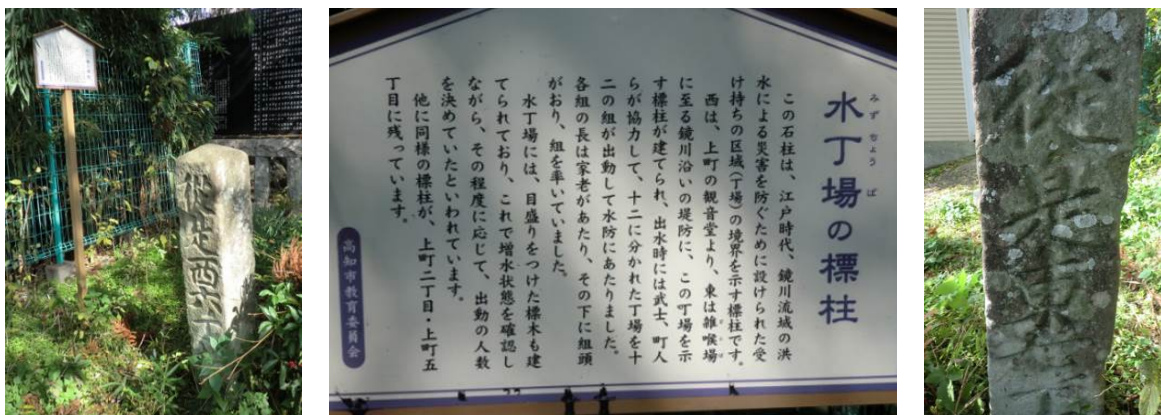 従是西六
水丁場の標柱
みずちょうば
この石柱は、江戸時代、鏡川流域の洪
水による災害を防ぐために設けられた受
け持ちの区域(丁場)の境界を示す標柱です。
西は、上町の観音堂より、東は雑喉場
ざこば
に至る鏡川沿いの堤防に、この丁場を示
す標柱が建てられ、出水時には武士、町人
らが協力して、十二に分かれた丁場を十
二の組が出動して水防にあたりました。
各組の長は家老があたり、その下に組頭
がおり、組を率いていました。
水丁場には、目盛りをつけた標木も建
てられており、これで増水状態を確認し
ながら、その程度に応じて、出動の人数
を決めていたといわれています。
他に同様の標柱が、上町二丁目・上町五
丁目に残っています。
高知市教育委員会
従是東